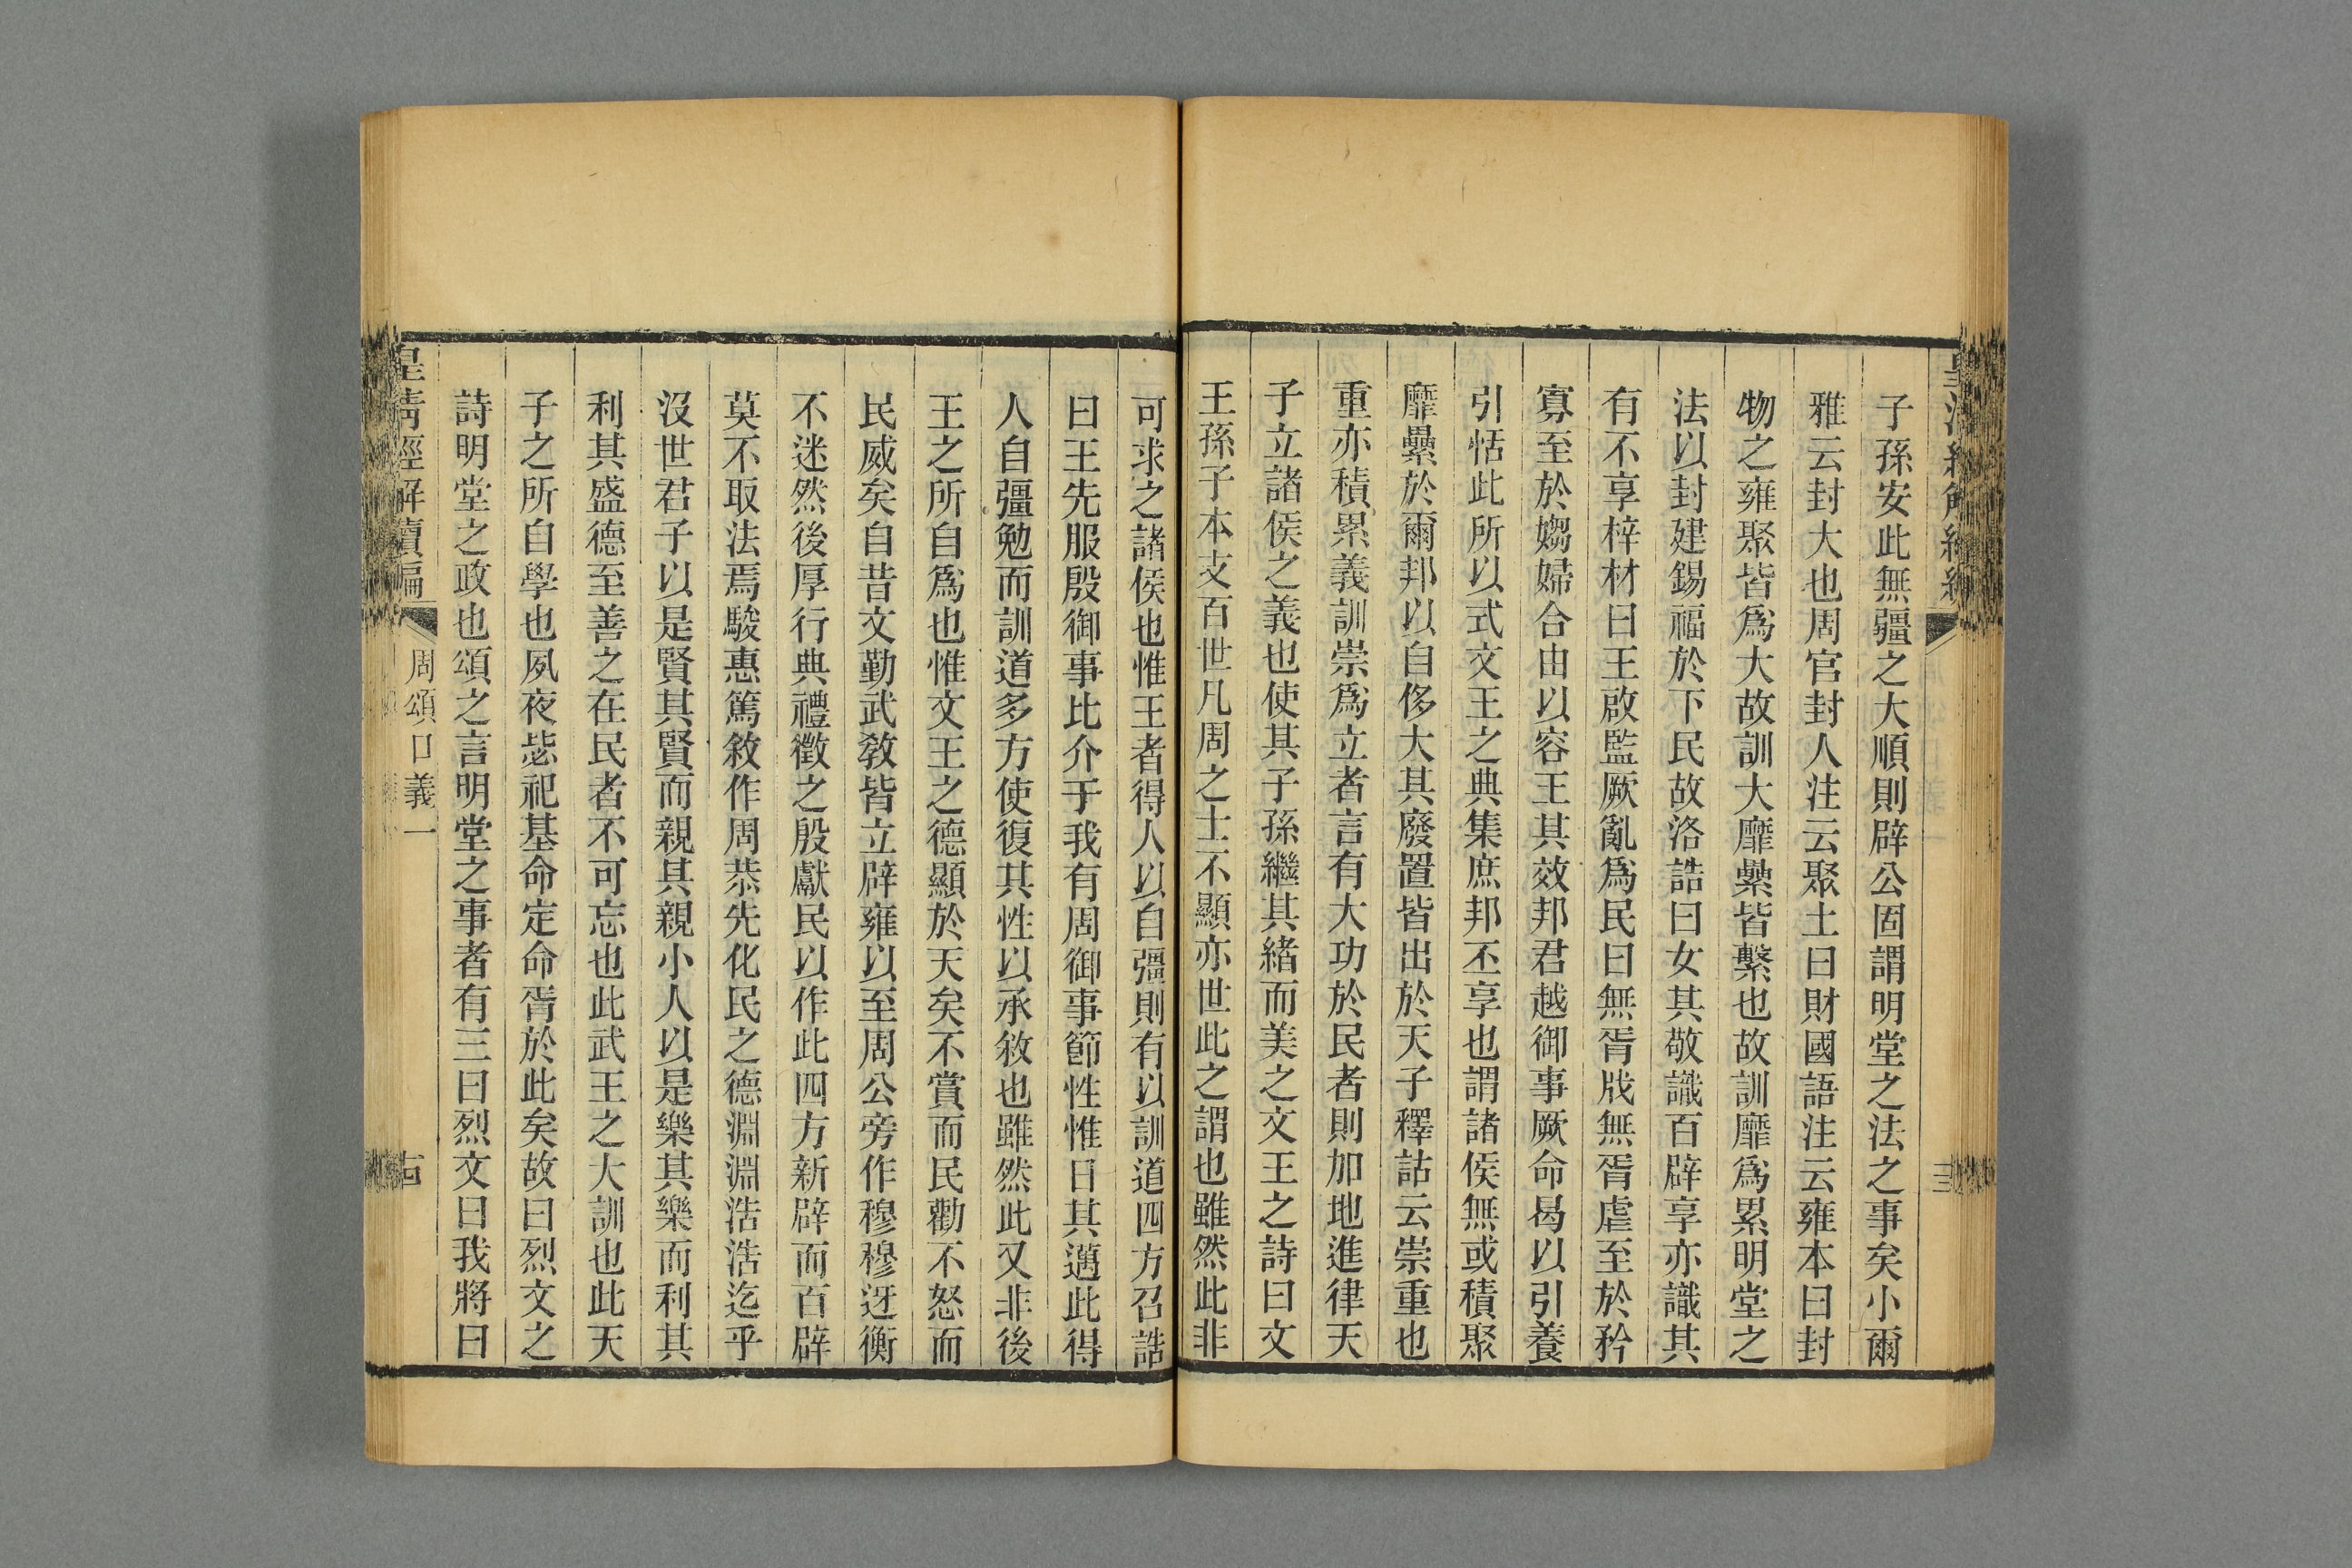 子孫安此無疆之大順則辟公固謂明堂之法之事矣小爾
雅云封大也周官封人注云聚土曰財國語注云雍本曰封
物之雍聚皆爲大故訓大靡纍皆繫也故訓靡爲累明堂之
法以封建錫福於下民故洛誥曰女其敬識百辟享亦識其
有不享梓材曰王啟監厥亂爲民曰無胥戕無胥虐至於矜
寡至於媰婦合由以容王其效邦君越御事厥命曷以引養
引恬此所以式文王之典集庶邦丕享也謂諸侯無或積聚
靡纍於爾邦以自侈大其廢置皆出於天子釋詁云崇重也
重亦積累義訓崇爲立者言有大功於民者則加地進律天
子立諸侯之義也使其子孫繼其緒而美之文王之詩曰文
王孫子本支百世凡周之士不顯亦世此之謂也雖然此非
可求之諸侯也惟王者得人以自彊則有以訓道四方召誥
曰王先服殷御事比介于我有周御事節性惟日其邁此得
人自彊勉而訓道多方使復其性以承敘也雖然此又非後
王之所自爲也惟文王之德顯於天矣不賞而民勸不怒而
民威矣自昔文勤武敎皆立辟雍以至周公旁作穆穆迓衡
不迷然後厚行典禮徵之殷獻民以作此四方新辟而百辟
莫不取法焉駿惠篤敘作周恭先化民之德淵淵浩浩迄乎
沒世君子以是賢其賢而親其親小人以是樂其樂而利其
利其盛德至善之在民者不可忘也此武王之大訓也此天
子之所自學也夙夜毖祀基命定命胥於此矣故曰烈文之
詩明堂之政也頌之言明堂之事者有三曰烈文曰我將曰
皇淸經解續編 周頌口義一 十四